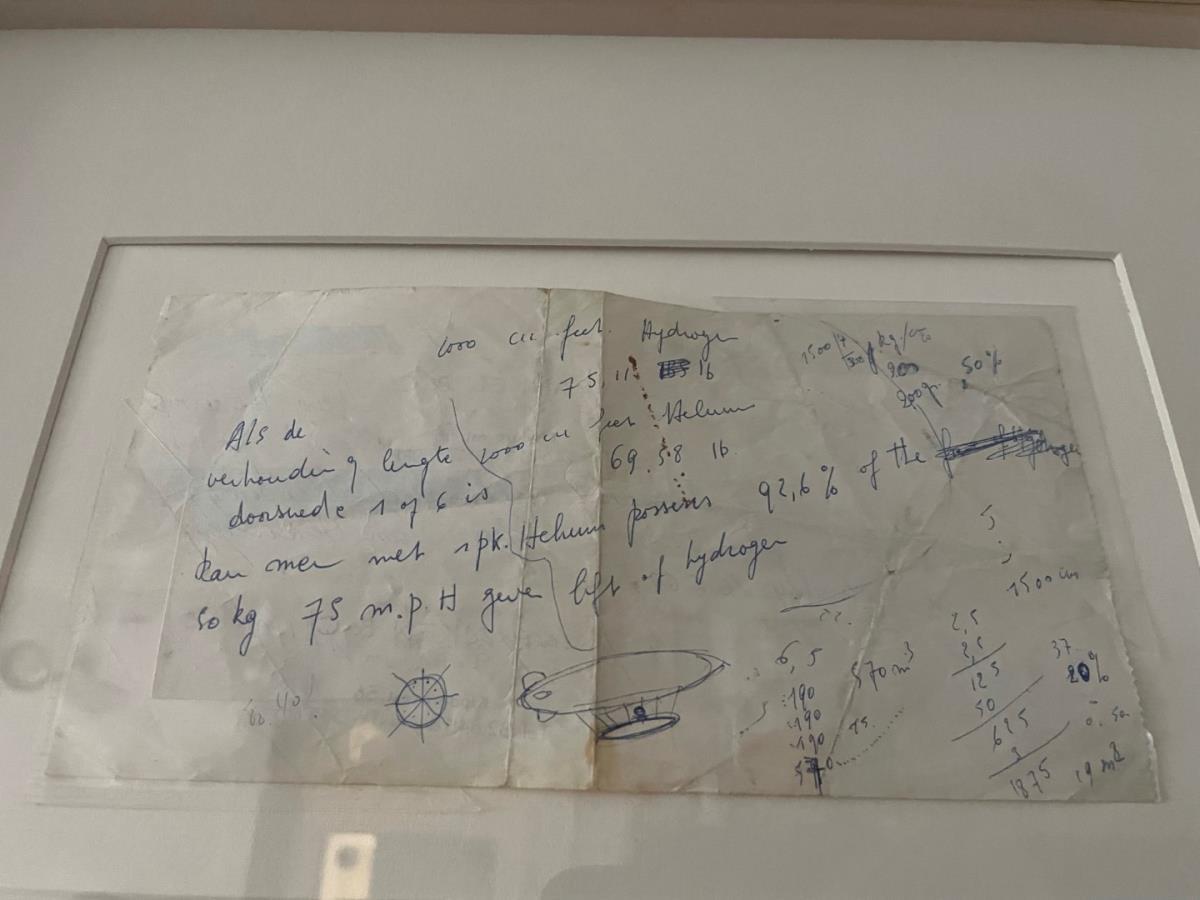 1000 cu. feet. Hydrogen
75,11 lb
1000 cu feet Helium
69.58 lb.
Helium possesses 92,6% of the
lift of hydrogen
Als de
verhouding lengte
doorsnede 1 of 6 is
kan men met 1 pk.
50 kg 75 m.p.H geven
1500
kg/
200gr.
50%
5
1500 cm
6,5
570 m³
190
190
190
570
15.
2,5
2,5
125
50
625
3
1875
37
20%
0.50
19 m²